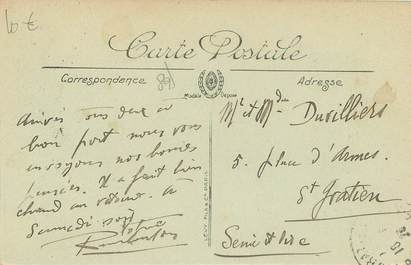 10 €
Carte Postale
Correspondance
Adresse
Modèle Déposé
89
Arrivés tous deux à
bon port nous vous
envoyons nos bonnes
Il a fait bien
chaud au retour. à
Samedi soir
Mr et Mme Duvilliers
5. place d'Armes.
St Gratien
Seine et Oise